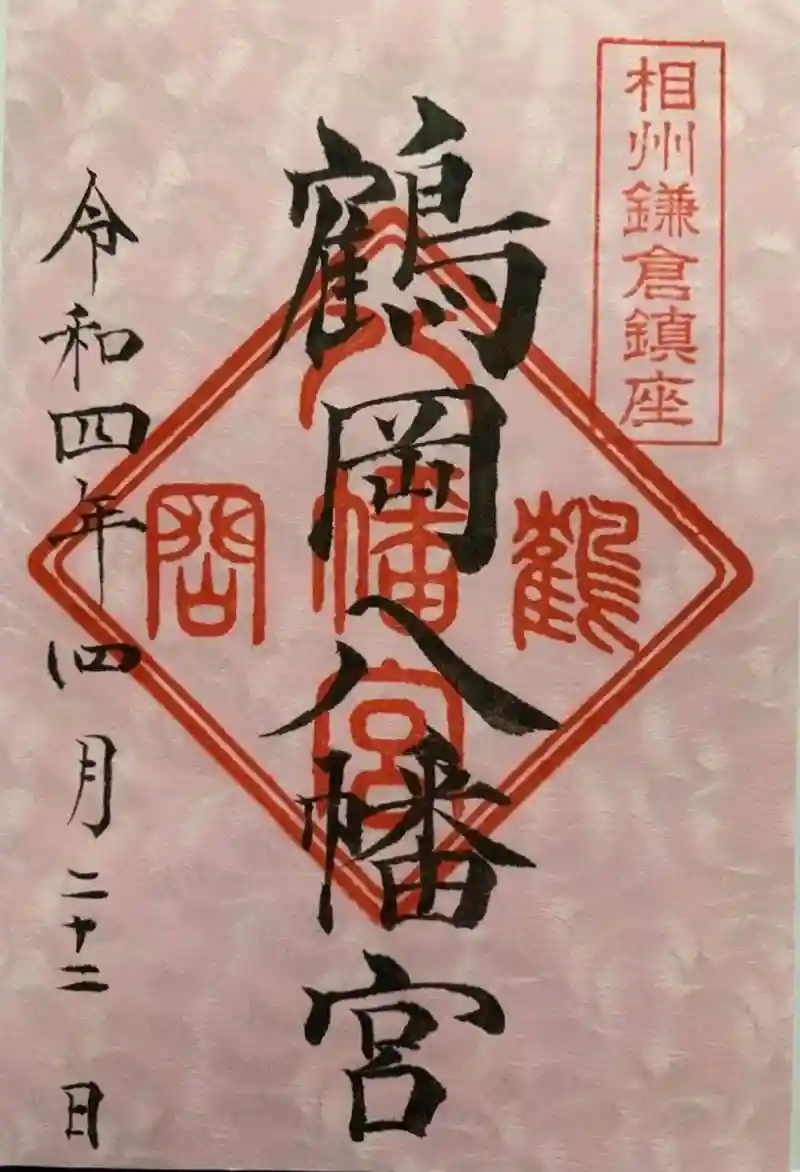 相州鎌倉鎮座
鶴岡八幡宮
鶴岡八幡宮
令和四年四月二十二日